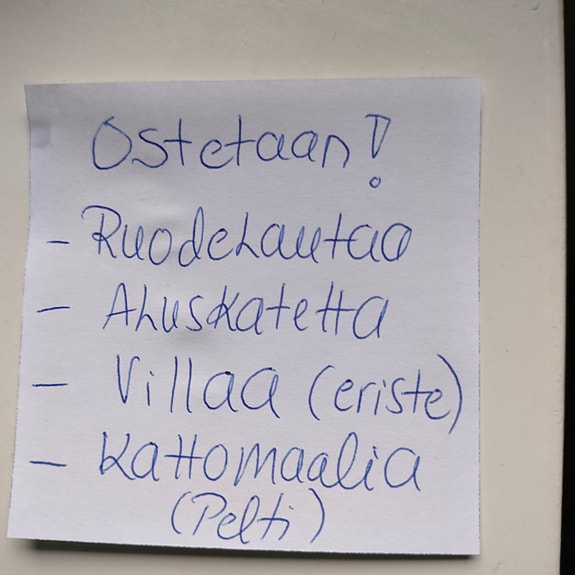 Ostetaan!
- Ruodelautaa
- Aluskatetta
- Villaa (eriste)
- Kattomaalia
(Pelti)